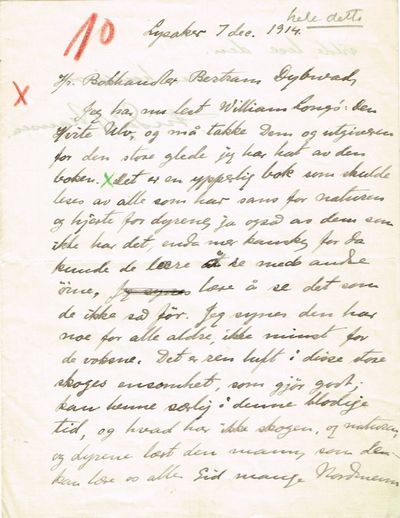 hele dette
10
Lysaker 7 dec. 1914.
Hr. Bokhandler Bertram Dybwad,
Jeg har nu lest William Long's: Den
Hvite Ulv, og må takke Dem og utgiveren
for den store glede jeg har hat av den
boken. x Det er en ypperlig bok som skulde
leses av alle som har sans for naturen
og hjerte for dyrene, ja også av dem som
ikke har det, enda mer kanske, for da
kunde de lære å se med andre
öine, lære å se det som
de ikke så för. Jeg synes den har
noe for alle aldre, ikke minst for
de voksne. Det er ren luft i disse store
skoges ensomhet, som gjör godt,
kan hende særlig i denne blodige
tid, og hvad har ikke skogen, og naturen,
og dyrene lært den mann, som den
kan lære os alle. Gid mange Nordmenn